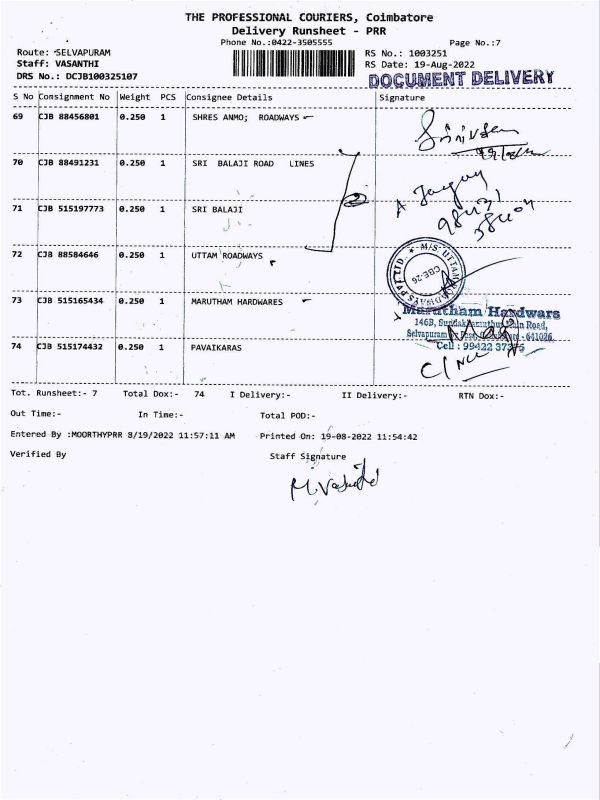 THE PROFESSIONAL COURIERS, Coimbatore
Delivery Runsheet - PRR
Phone No.:0422-3505555
Page No.:7
Route: SELVAPURAM
RS No.: 1003251
Staff: VASANTHI
RS Date: 19-Aug-2022
DRS No.: DCJB100325107
DOCUMENT DELIVERY
S No Consignment No Weight PCS Consignee Details Signature
69 CJB 88456801 0.250 1 SHRES ANMO; ROADWAYS
70 CJB 88491231 0.250 1 SRI BALAJI ROAD LINES
71 CJB 515197773 0.250 1 SRI BALAJI
72 CJB 88584646 0.250 1 UTTAM ROADWAYS
M/S. UTTAM ROADWAYS PVT. LTD.
CBE-26
73 CJB 515165434 0.250 1 MARUTHAM HARDWARES
Marutham Hardwars
146B, Main Road,
Selvapuram - 641026
Cell : 99422
74 CJB 515174432 0.250 1 PAVAIKARAS
Tot. Runsheet:- 7 Total Dox:- 74 I Delivery:- II Delivery:- RTN Dox:-
Out Time:- In Time:- Total POD:-
Entered By :MOORTHYPRR 8/19/2022 11:57:11 AM Printed On: 19-08-2022 11:54:42
Verified By Staff Signature